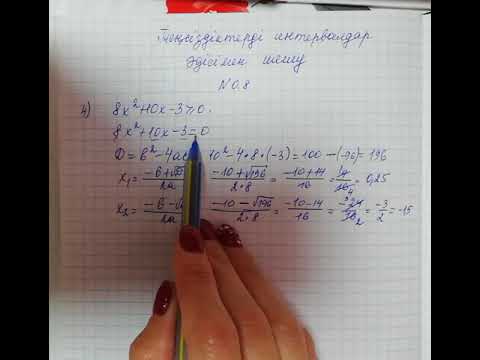 Теңсіздіктерді интервалдар
әдісімен шешу
N 0.8
4) 8x²+10x-3≥0.
8x²+10x-3=0
D=b²-4ac 10²-4·8·(-3)=100-(-96)=196
x₁= (-b+√D)/2a (-10+√196)/(2·8) = (-10+14)/16 = 4/16 = 0,25
x₂= (-b-√)/2a (-10-√196)/(2·8) = (-10-14)/16 = -24/16 = -3/2 = -1,5